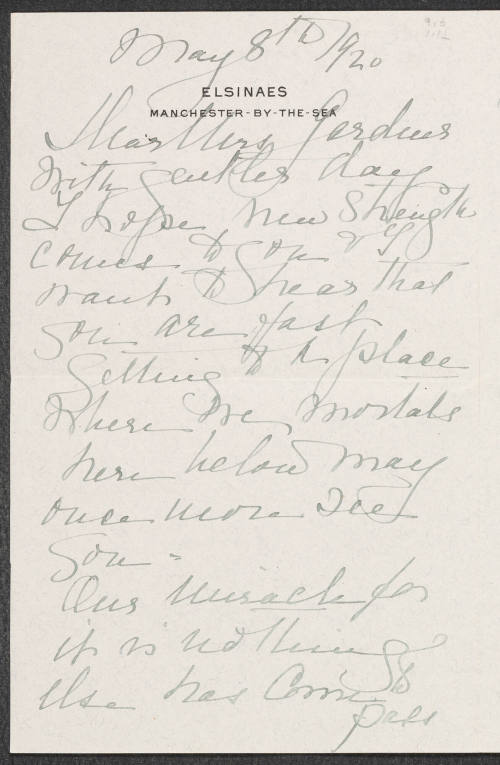 May 8th 1920
ELSINAES
MANCHESTER-BY-THE-SEA
Dear Mrs Gardner
With gentler day
I hope new strength
comes to you & I
want to hear that
you are fast
getting to a place
where we, mortals
here below may
once more see
you -
Our miracle for
it is nothing
else has come to
pass